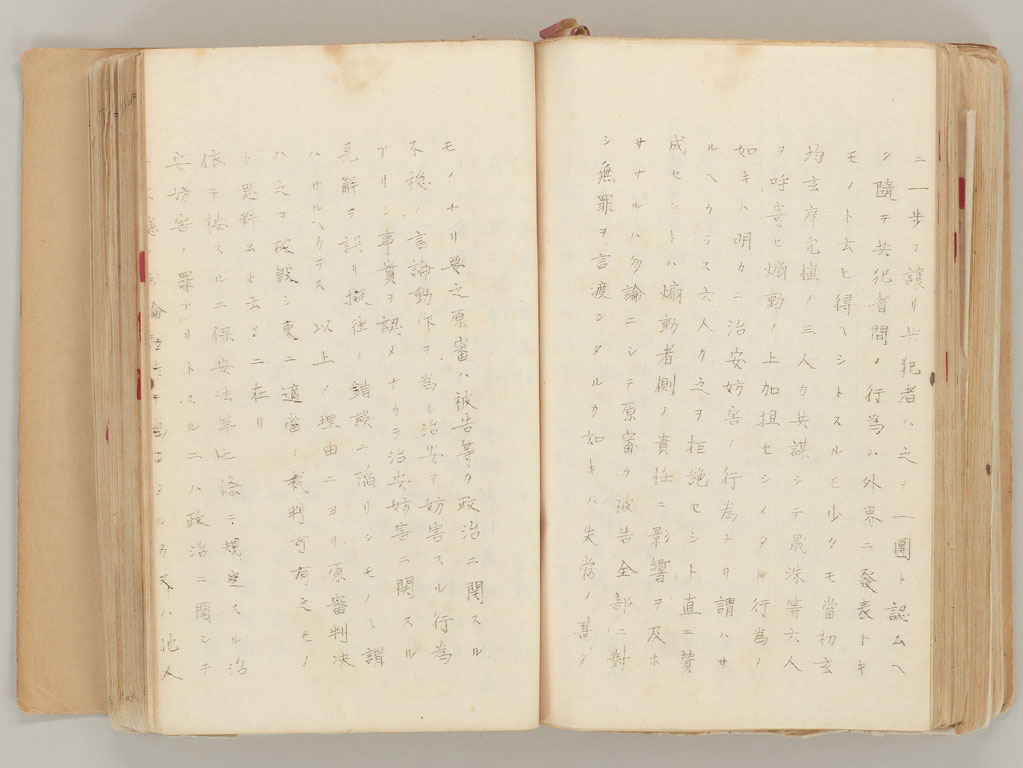 ニ一歩ヲ讓リ共犯者ハ之ヲ一團ト認ムヘ
ク隨テ共犯者間ノ行為ハ外界ニ發表ナキ
モノト云ヒ得ヘシトスルモ少クモ當初玄
均玄席
植ノ三人カ共謀シテ晟洙等六人
ヲ呼寄セ煽動ノ上加担セシメタル行為ノ
如キハ明カニ治安妨害ノ行為ナリ謂ハサ
ルヘカラス六人カ之ヲ拒絶セシト直ニ賛
成セシトハ煽動者側ノ責任ニ影響ヲ及ホ
ササルハ勿論ニシテ原審カ被告全部ニ對
シ無罪ヲ言渡シタルカ如キハ失當ノ甚シ
モノナリ要之原審ハ被告等カ政治ニ関スル
不穏ノ言論動作ヲ為シ治安ヲ妨害スル行為
アリシ事實ヲ認メナカラ治安妨害ニ関スル
見解ヲ誤リ擬律ノ錯誤ニ陥リシモノト謂
ハサルヘカラス以上ノ理由ニヨリ原審判决
ハ之ヲ破毀シ更ニ適當ノ裁判可有之モノ
ト思料スト云フニ在リ
依テ按スルニ保安法第七條ニ規定スル治
安妨害ノ罪アリトスルニハ政治ニ関シテ
不穏ノ言論動作ヲ為シタルカ又ハ他人